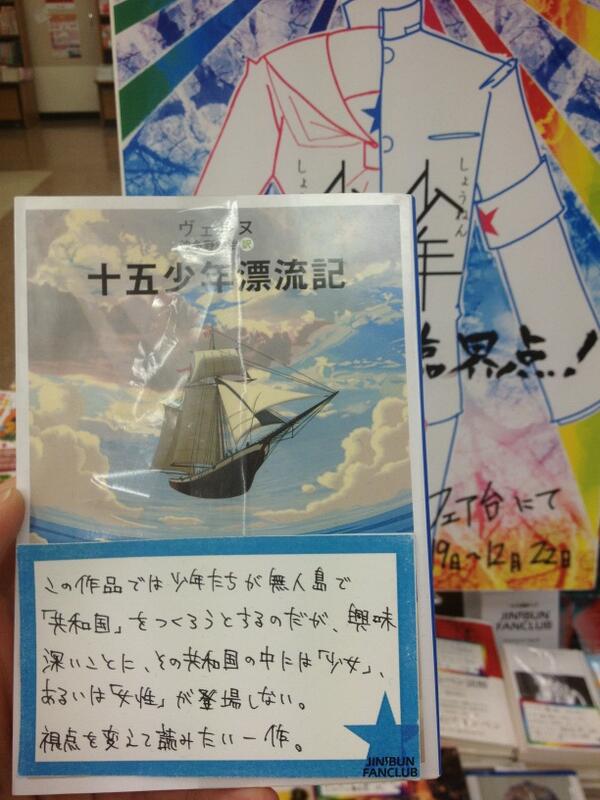 しょうねん
少年
臨界点!
フェア台にて
19日〜12月22日
ヴェルヌ
訳
十五少年漂流記
この作品では少年たちが無人島で
「共和国」をつくろうとするのだが、興味
深いことに、その共和国の中には「少女」、
あるいは「女性」が登場しない。
視点を変えて読みたい一作。
JINBUN
FANCLUB
JINBUN
FANCLUB